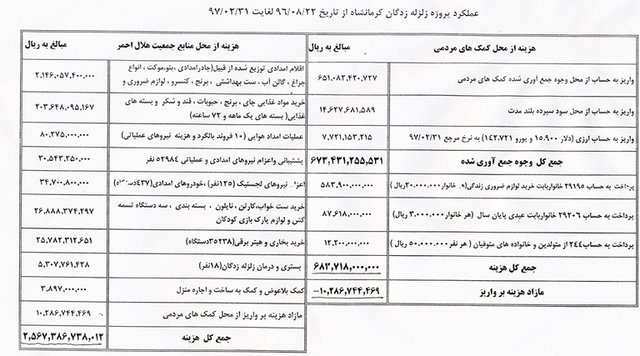 عملکرد پروژه زلزله زدگان کرمانشاه از تاریخ ۹۶/۰۸/۲۲ لغایت ۹۷/۰۲/۳۱
هزینه از محل کمک های مردمی
مبالغ به ریال
واریز به حساب از محل وجوه جمع آوری شده کمک های مردمی
۶۵۱,۰۸۲,۴۲۰,۷۲۷
واریز به حساب از محل سود سپرده بلند مدت
۱۴,۶۲۷,۶۸۱,۵۸۹
واریز به حساب ارزی (دلار ۱۵.۹۰۰ و یورو ۱۴۲.۷۲۱) به نرخ مرجع ۹۷/۰۲/۳۱
۷,۷۲۱,۱۵۳,۲۱۵
جمع کل وجوه جمع آوری شده
۶۷۳,۴۳۱,۲۵۵,۵۳۱
پرداخت به حساب ۲۹۱۹۵ خانواربابت خرید لوازم ضروری زندگی( خانوار۲۰.۰۰۰.۰۰۰ریال)
۵۸۳,۹۰۰,۰۰۰,۰۰۰
پرداخت به حساب ۲۹۲۰۶ خانواربابت عیدی پایان سال (هر خانوار ۳.۰۰۰.۰۰۰ریال)
۸۷,۶۱۸,۰۰۰,۰۰۰
پرداخت به حساب ۲۴۴نفر از متولدین و خانواده های متوفیان ( هر نفر ۵۰.۰۰۰.۰۰۰ ریال )
۱۲,۲۰۰,۰۰۰,۰۰۰
جمع کل هزینه
۶۸۳,۷۱۸,۰۰۰,۰۰۰
مازاد هزینه بر واریز
-۱۰,۲۸۶,۷۴۴,۴۶۹
هزینه از محل منابع جمعیت هلال احمر
مبالغ به ریال
اقلام امدادی توزیع شده از قبیل(چادرامدادی ،پتو،موکت ، انواع
چراغ ، گالن آب ، ست بهداشتی ، برنج ، کنسرو ، لوازم ضروری و
۲,۱۴۶,۰۵۷,۴۰۰,۰۰۰
خرید مواد غذایی چای ، برنج ، حبوبات ، قند و شکر و بسته های
غذایی( بسته های یک ماهه و ۷۲ ساعته)
۲۰۳,۶۴۸,۰۹۵,۱۶۷
عملیات امداد هوایی (۱۰ فروند بالگرد و هزینه نیروهای عملیاتی)
۸۰,۲۷۵,۰۰۰,۰۰۰
پشتیبانی واعزام نیروهای امدادی و عملیاتی ۵۲۹۸۴ نفر
۳۰,۵۴۳,۲۵۰,۰۰۰
نیروهای لجستیک (۱۲۵نفر)،خودروهای امدادی(۴۳۷
۳۴,۷۰۰,۸۰۰,۰۰۰
خرید ست خواب،کارتن ، نایلون ، بسته بندی ، سه دستگاه تسمه
کش و لوازم پارک بازی کودکان
۲۶,۸۸۸,۳۷۴,۲۹۷
خرید بخاری و هیتر برقی(۳۵۲۳۸دستگاه)
۲۵,۷۸۲,۳۱۲,۶۵۱
بستری و درمان زلزله زدگان(۱۸نفر)
۵,۳۰۷,۷۶۱,۴۲۸
کمک بلاعوض و کمک به ساخت و اجاره منزل
۳,۸۹۷,۰۰۰,۰۰۰
مازاد هزینه بر واریز از محل کمک های مردمی
۱۰,۲۸۶,۷۴۴,۴۶۹
جمع کل هزینه
۲,۵۶۷,۳۸۶,۷۳۸,۰۱۲